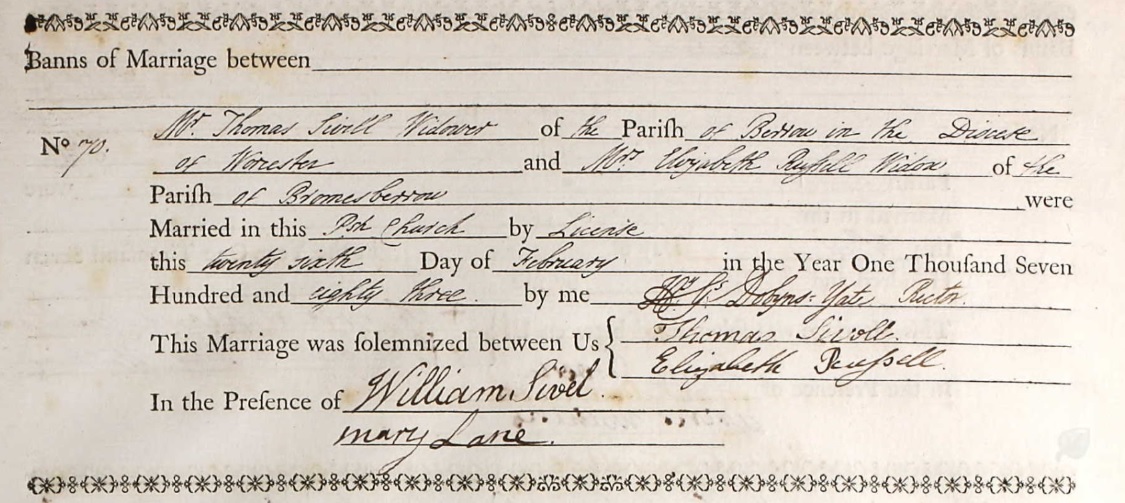 Banns of Marriage between
Nº 70. Mr. Thomas Sivell Widower of the Pariſh of Berrow in the Diocese
of Worcester and Mrs. Elizabeth Ruſsell Widow of the
Pariſh of Bromesberrow were
Married in this Psh Church by License
this twenty sixth Day of February in the Year One Thouſand Seven
Hundred and eighty three. by me Dobyns: Yate Rector.
This Marriage was ſolemnized between Us { Thomas Sivell.
Elizabeth Ruſsell.
In the Preſence of William Sivel
mary Lane.